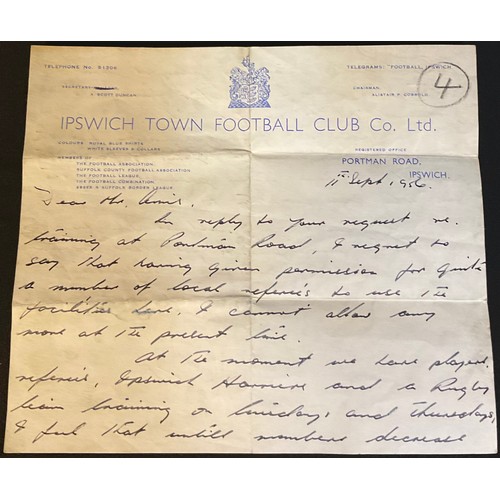 TELEPHONE No. 51306
TELEGRAMS: FOOTBALL, IPSWICH
SECRETARY
A. SCOTT DUNCAN.
CHAIRMAN,
ALISTAIR P. COBBOLD.
4
IPSWICH TOWN FOOTBALL CLUB Co. Ltd.
COLOURS ROYAL BLUE SHIRTS
WHITE SLEEVES & COLLARS
MEMBERS OF
THE FOOTBALL ASSOCIATION.
SUFFOLK COUNTY FOOTBALL ASSOCIATION
THE FOOTBALL LEAGUE,
THE FOOTBALL COMBINATION,
ESSEX & SUFFOLK BORDER LEAGUE.
REGISTERED OFFICE
PORTMAN ROAD,
IPSWICH.
11th Sept, 1956.
Dear Mr.
In reply to your request re.
training at Portman Road, I regret to
say that having given permission for quite
a number of local referee's to use the
facilities here, I cannot allow any
more at the present time.
At the moment we have players,
referee's, Ipswich Harriers and a Rugby
team training on tuesdays and thursdays,
I feel that untill numbers decrease